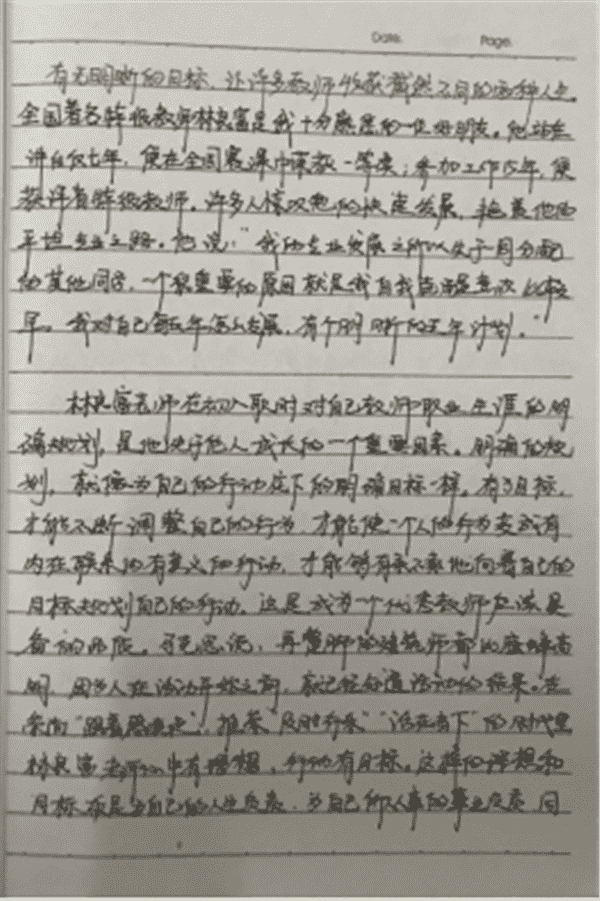 Date.    Page.
有无明晰的目标，让许多教师收获截然不同的两种人生。
全国著名特级教师林良富是我十分熟悉的一位好朋友。他站在
讲台仅七年，便在全国赛课中荣获一等奖；参加工作15年，便
获评省特级教师。许多人惊叹他的快速发展，艳羡他的
平坦专业之路。他说："我的专业发展之所以优于同分配
的其他同学，一个很重要的原因就是我自我规划意识比较
早。我对自己每五年怎么发展，有个明晰的五年计划。"
林良富老师在初入职时对自己教师职业生涯的明
确规划，是他优于他人成长的一个重要因素。明确的规
划，就像为自己的行动定下的明确目标一样。有了目标，
才能不断调整自己的行为，才能使一个人的行为变成有
内在联系的有意义的行动，才能够有条不紊地向着自己的
目标规划自己的行动。这是成为一个优秀教师应该具
备的品质。马克思说，再蹩脚的建筑师都比蜜蜂高
明，因为人在活动开始之前，就已经知道活动的结果。在
崇尚"跟着感觉走"，推崇"及时行乐""活在当下"的时代里
林良富老师心中有理想，行动有目标。这样的理想和
目标不是为自己的人生负责，为自己所从事的事业负责，同